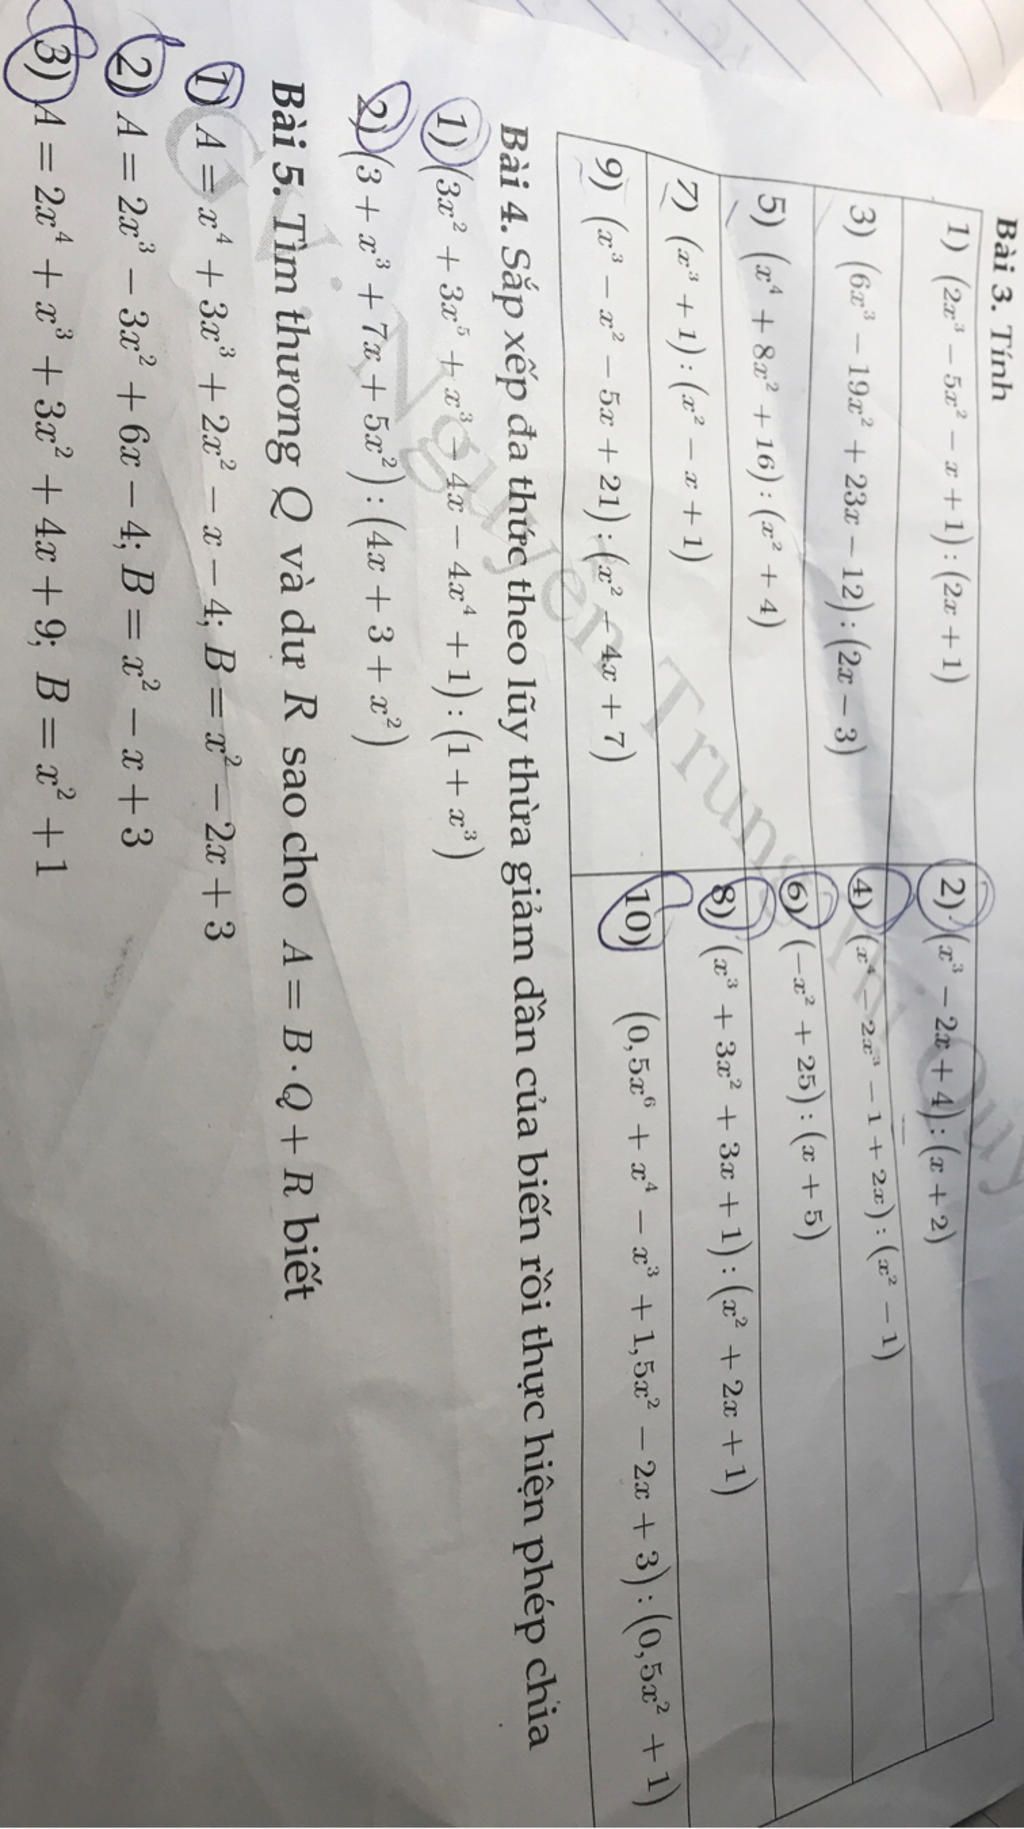 Bài 3. Tính
1) (2x³ − 5x² − x + 1) : (2x + 1)
2) (x³ − 2x + 4) : (x + 2)
3) (6x³ − 19x² + 23x − 12) : (2x − 3)
4) (x⁴ − 2x³ − 1 + 2x) : (x² − 1)
5) (x⁴ + 8x² + 16) : (x² + 4)
6) (−x² + 25) : (x + 5)
7) (x³ + 1) : (x² − x + 1)
8) (x³ + 3x² + 3x + 1) : (x² + 2x + 1)
9) (x³ − x² − 5x + 21) : (x² − 4x + 7)
10) (0,5x⁶ + x⁴ − x³ + 1,5x² − 2x + 3) : (0,5x² + 1)
Bài 4. Sắp xếp đa thức theo lũy thừa giảm dần của biến rồi thực hiện phép chia
1) (3x² + 3x⁵ + x³ − 4x − 4x⁴ + 1) : (1 + x³)
2) (3 + x³ + 7x + 5x²) : (4x + 3 + x²)
Bài 5. Tìm thương Q và dư R sao cho A = B · Q + R biết
1) A = x⁴ + 3x³ + 2x² − x − 4; B = x² − 2x + 3
2) A = 2x³ − 3x² + 6x − 4; B = x² − x + 3
3) A = 2x⁴ + x³ + 3x² + 4x + 9; B = x² + 1